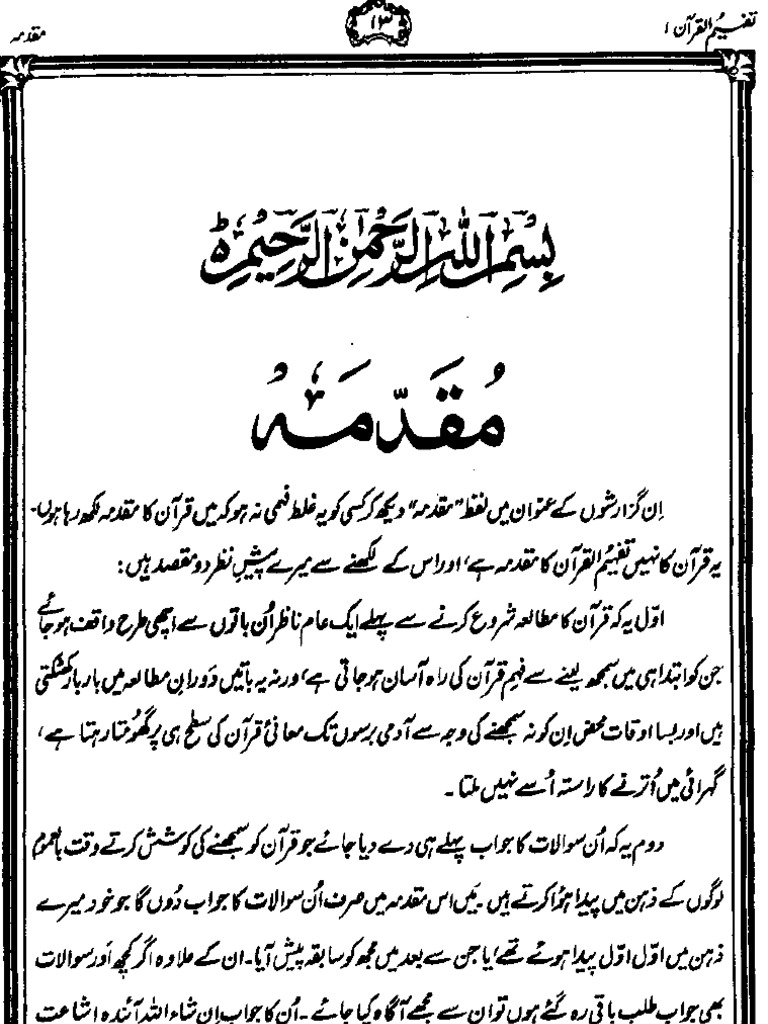 تفہیم القرآن ۱
۱۳
مقدمہ
بِسْمِ اللّٰهِ الرَّحْمٰنِ الرَّحِيْمِ ط
مُقَدّمَہ
اِن گزارشوں کے عنوان میں لفظ ”مقدمہ“ دیکھ کر کسی کو یہ غلط فہمی نہ ہو کہ میں قرآن کا مقدمہ لکھ رہا ہوں۔
یہ قرآن کا نہیں تفہیم القرآن کا مقدمہ ہے، اور اس کے لکھنے سے میرے پیشِ نظر دو مقصد ہیں:
اوّل یہ کہ قرآن کا مطالعہ شروع کرنے سے پہلے ایک عام ناظر اُن باتوں سے اچھی طرح واقف ہو جائے
جن کو ابتدا ہی میں سمجھ لینے سے فہمِ قرآن کی راہ آسان ہو جاتی ہے، ورنہ یہ باتیں دَورانِ مطالعہ میں بار بار کھٹکتی
ہیں اور بسا اوقات محض اِن کو نہ سمجھنے کی وجہ سے آدمی برسوں تک معانیٔ قرآن کی سطح ہی پر گھُومتا رہتا ہے،
گہرائی میں اُترنے کا راستہ اُسے نہیں ملتا۔
دوم یہ کہ اُن سوالات کا جواب پہلے ہی دے دیا جائے جو قرآن کو سمجھنے کی کوشش کرتے وقت بالعموم
لوگوں کے ذہن میں پیدا ہُوا کرتے ہیں۔ مَیں اس مقدمہ میں صرف اُن سوالات کا جواب دُوں گا جو خود میرے
ذہن میں اوّل اوّل پیدا ہوئے تھے، یا جن سے بعد میں مجھ کو سابقہ پیش آیا۔ ان کے علاوہ اگر کچھ اَور سوالات
بھی جواب طلب باقی رہ گئے ہوں تو ان سے مجھے آگاہ کیا جائے۔ اُن کا جواب اِن شاء اللہ آئندہ اشاعت